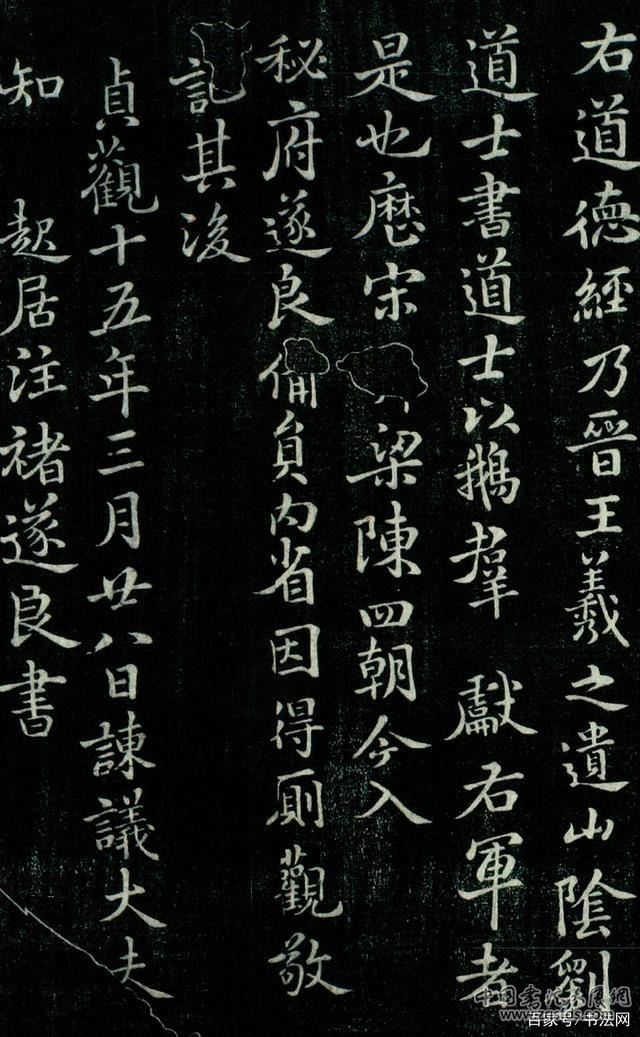 右道德經乃晉王羲之遺山陰劉
道士書道士以鵝羣 獻右軍者
是也歷宋 梁陳四朝今入
秘府遂良備員內省因得廁觀敬
記其後
貞觀十五年三月廿八日諫議大夫
知 起居注褚遂良書
百家号/书法网